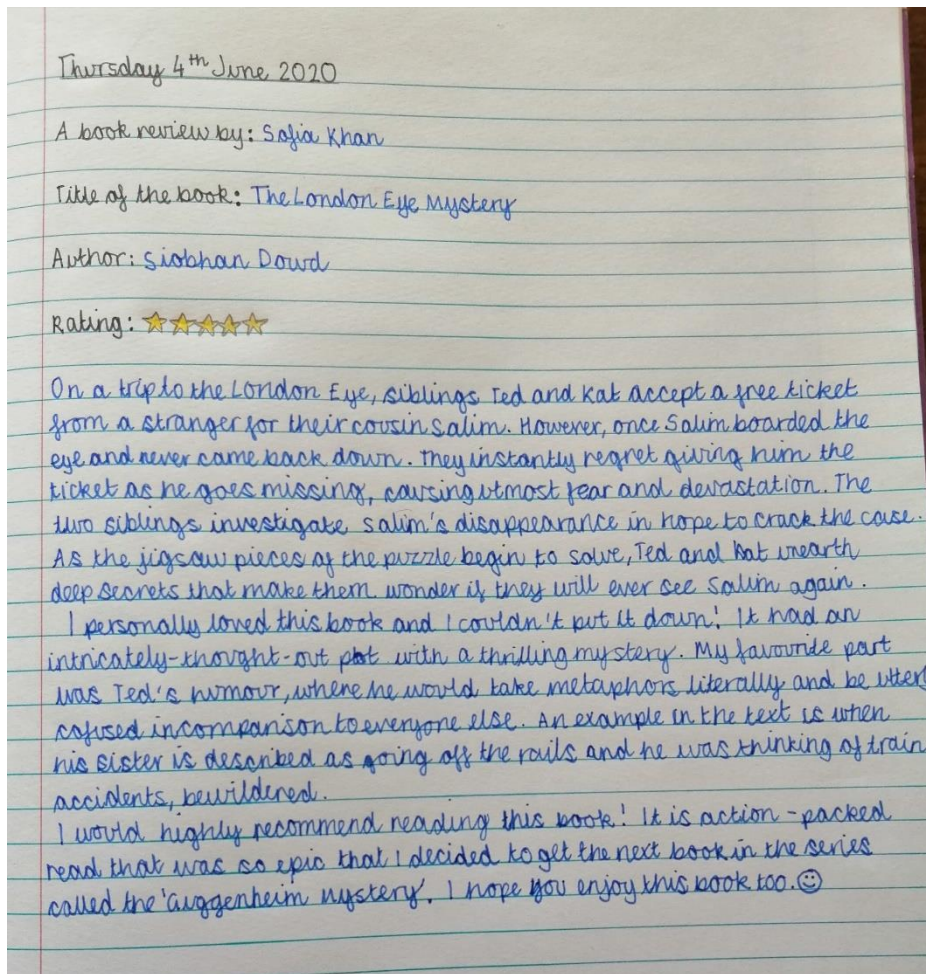 Thursday 4th June 2020
A book review by: Safia Khan
Title of the book: The London Eye Mystery
Author: Siobhan Dowd
Rating: ★★★★★
On a trip to the London Eye, siblings Ted and Kat accept a free ticket
from a stranger for their cousin Salim. However, once Salim boarded the
eye and never came back down. They instantly regret giving him the
ticket as he goes missing, causing utmost fear and devastation. The
two siblings investigate Salim's disappearance in hope to crack the case.
As the jigsaw pieces of the puzzle begin to solve, Ted and Kat unearth
deep secrets that make them wonder if they will ever see Salim again.
I personally loved this book and I couldn't put it down! It had an
intricately-thought-out plot with a thrilling mystery. My favourite part
was Ted's humour, where he would take metaphors literally and be utterl
cofused in comparison to everyone else. An example in the text is when
his sister is described as going off the rails and he was thinking of train
accidents, bewildered.
I would highly recommend reading this book! It is action-packed
read that was so epic that I decided to get the next book in the series
called the 'Guggenheim Mystery'. I hope you enjoy this book too.☺